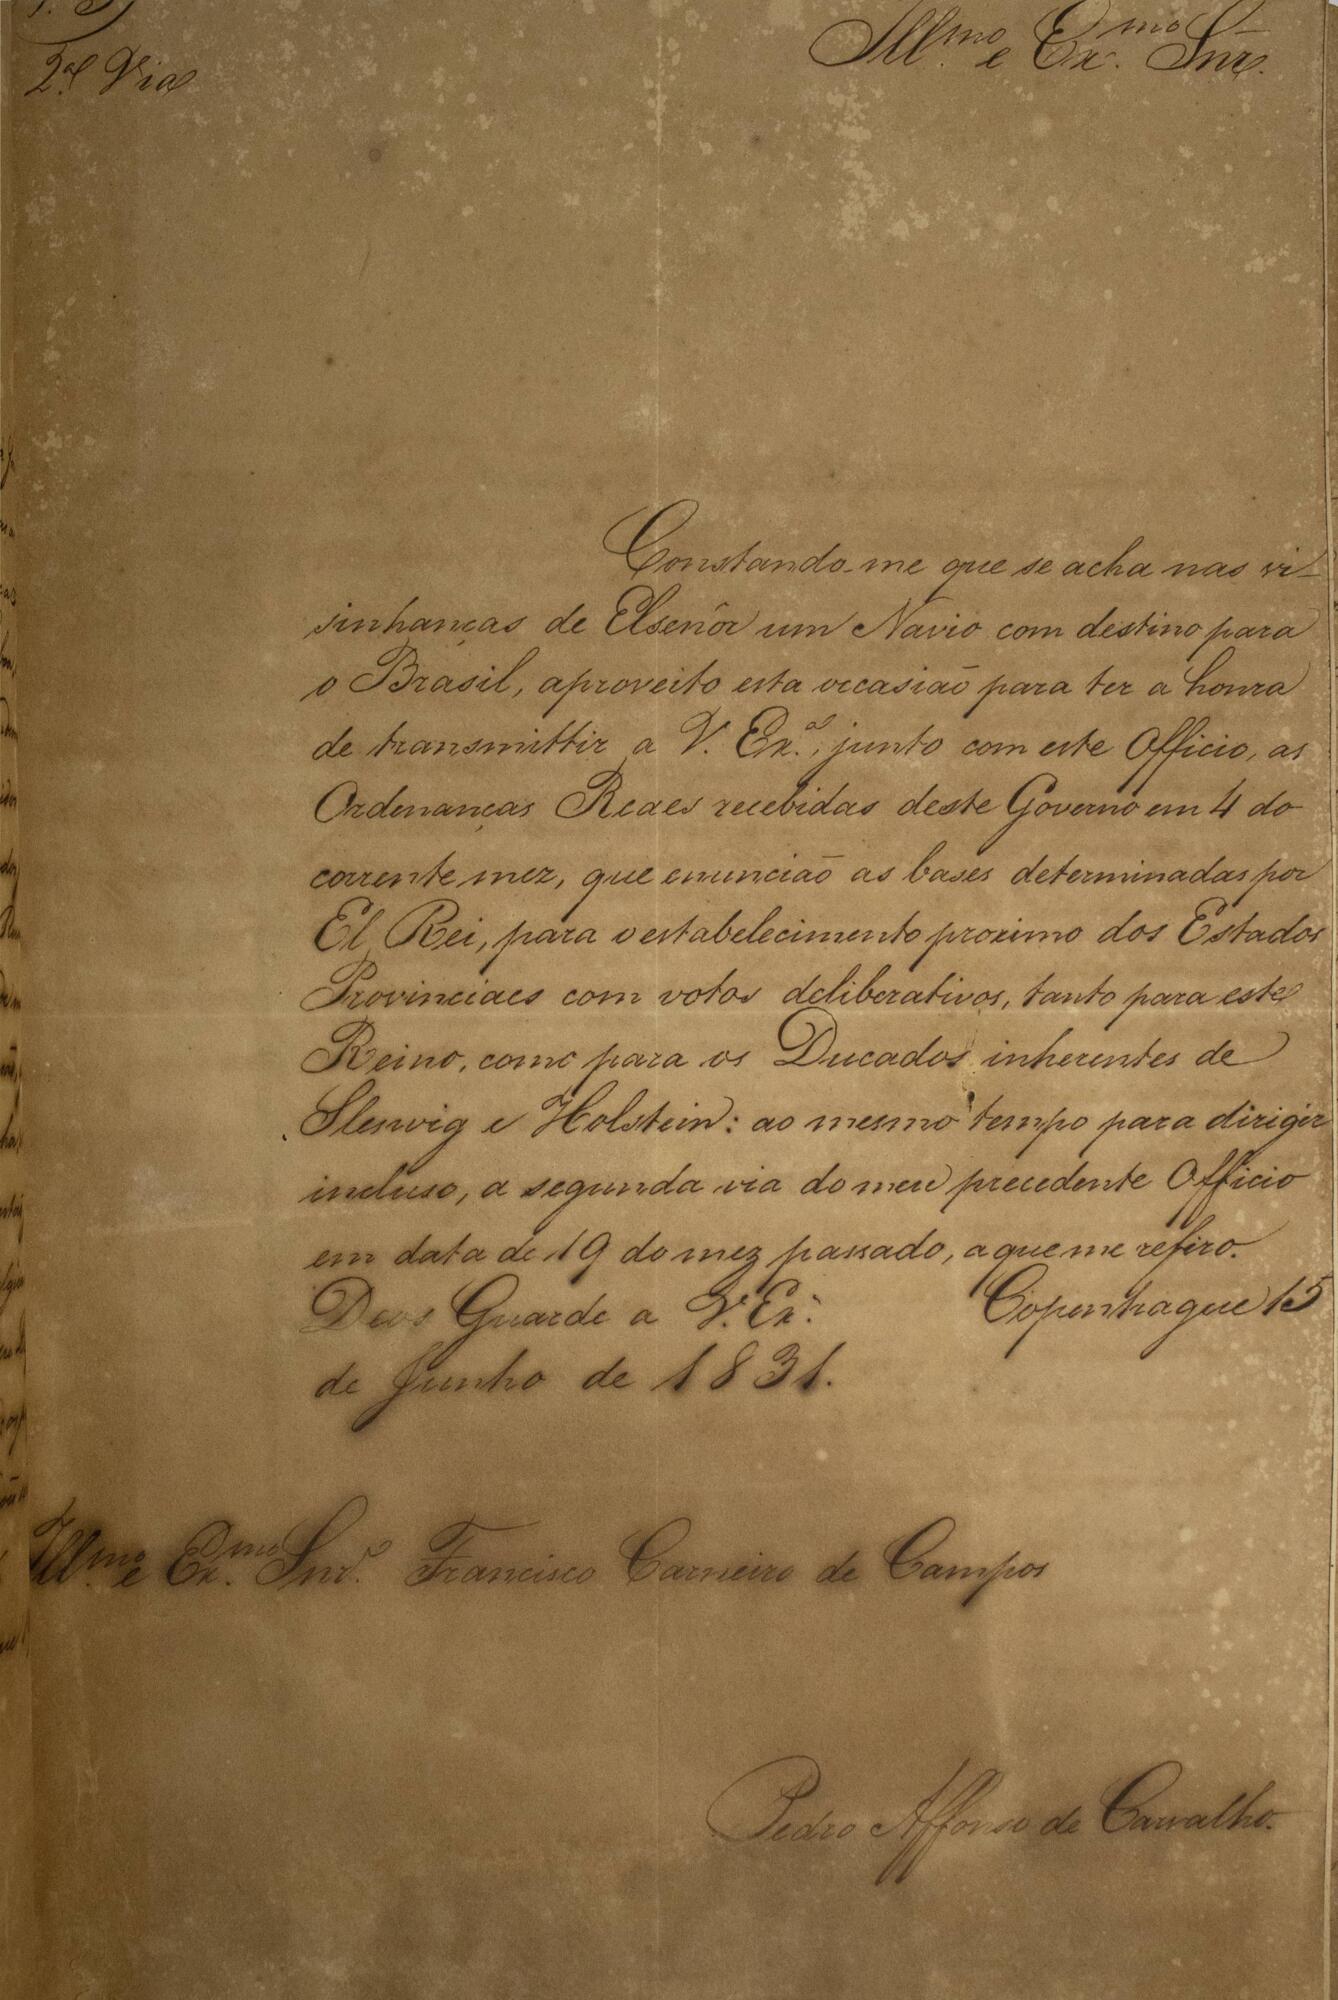 2ª Via
Illmo. e Exmo. Snr.
Constando-me que se acha nas vi-
sinhanças de Elsenôr um Navio com destino para
o Brasil, aproveito esta occasião para ter a honra
de transmittir a V. Exª., junto com este Officio, as
Ordenanças Reaes recebidas deste Governo em 4 do
corrente mez, que enuncião as bases determinadas por
El Rei, para o estabelecimento proximo dos Estados
Provinciaes com votos deliberativos, tanto para este
Reino, como para os Ducados inherentes de
Sleswig e Holstein: ao mesmo tempo para dirigir
incluso, a segunda via do meu precedente Officio
em data de 19 do mez passado, a que me refiro.
Deos Guarde a V. Exª. Copenhague 15
de Junho de 1831.
Illmo. e Exmo. Snr. Francisco Carneiro de Campos
Pedro Affonso de Carvalho.